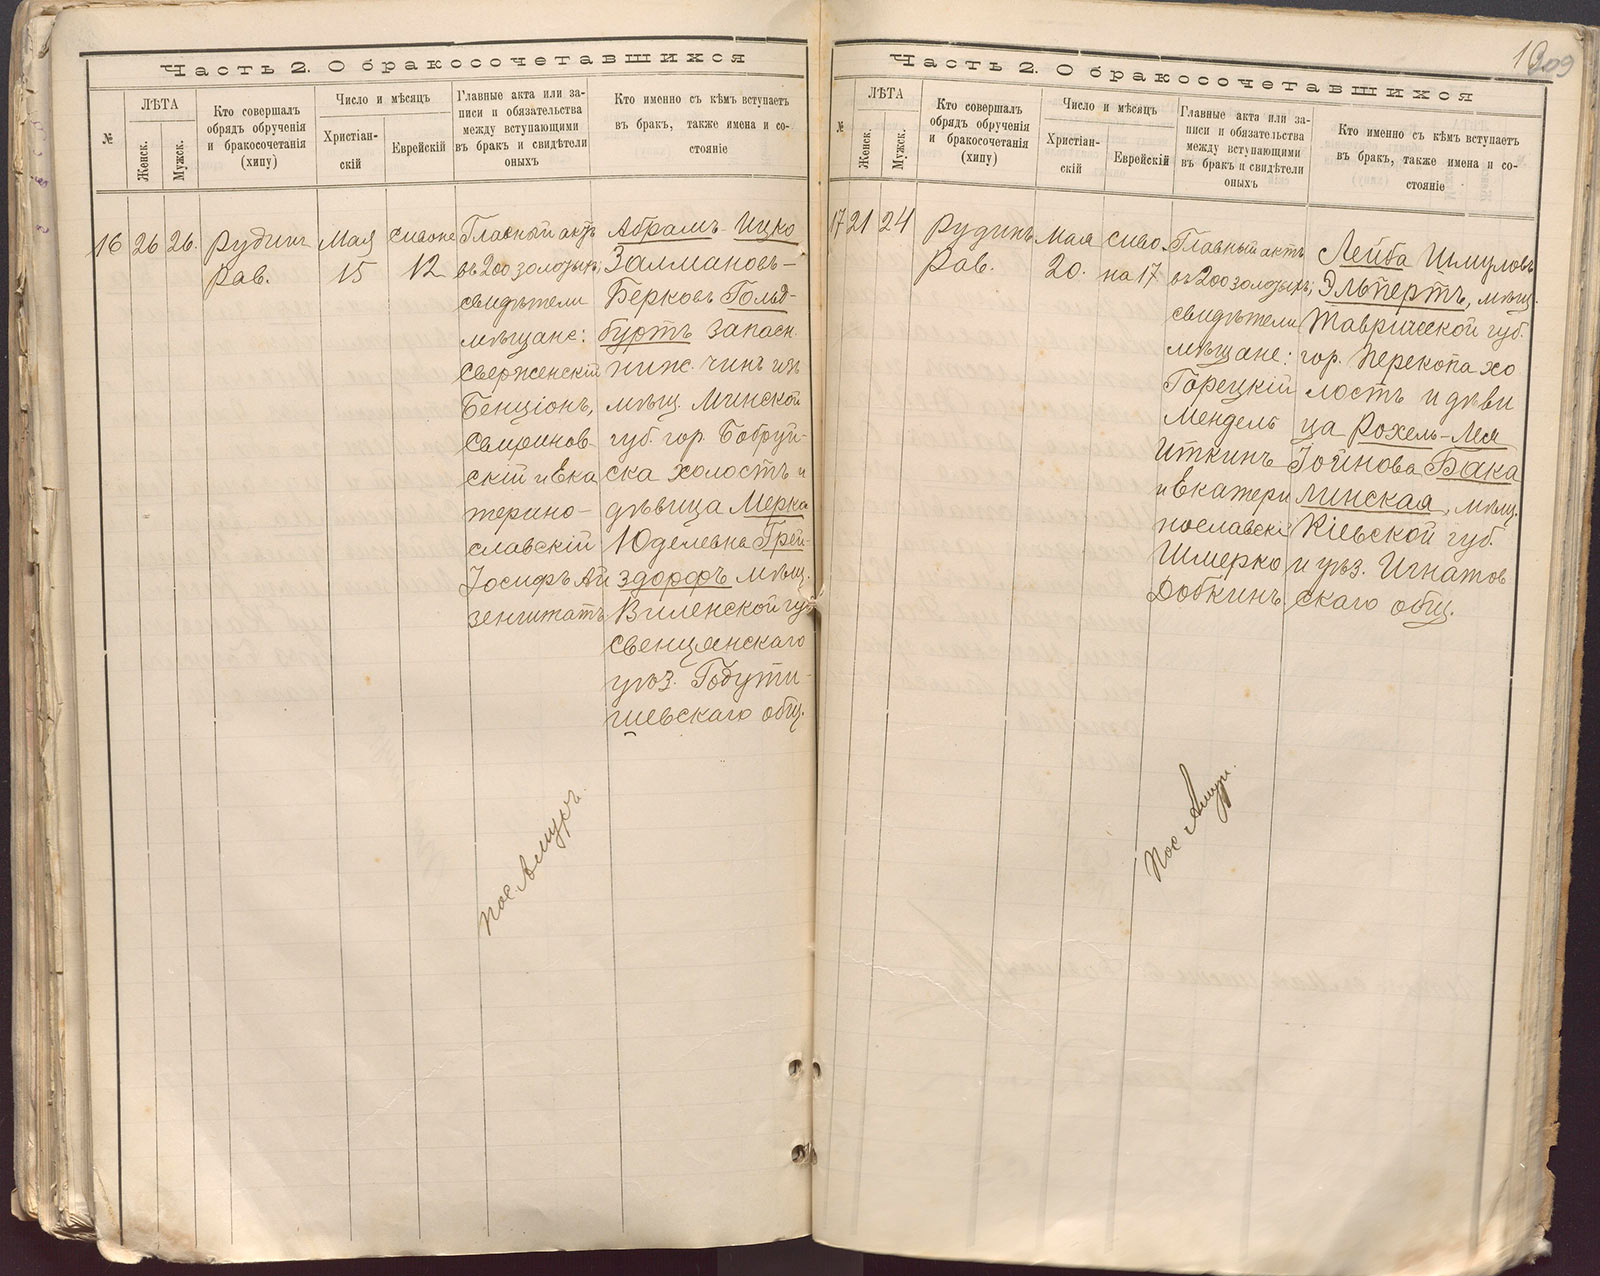 Часть 2. О бракосочетавшихся
№
ЛѢТА
Женск.
Мужск.
Кто совершалъ
обрядъ обрученія
и бракосочетанія
(хипу)
Число и мѣсяцъ
Христіан-
скій
Еврейскій
Главные акта или за-
писи и обязательства
между вступающими
въ бракъ и свидѣтели
оныхъ
Кто именно съ кѣмъ вступаетъ
въ бракъ, также имена и со-
стояніе
16
26
26.
Рудинъ
Рав.
Мая
15
Сивоне
12
Главный актъ
въ 200 золотых;
свидѣтели
мѣщане:
Сверженскій
Бенціонъ,
Свиринов-
скій и Ека
терино-
славскій
Іосифъ Ай
зенштатъ
Абрамъ-Ицко
Залмановъ-
Берковъ Гольд-
буртъ запасн.
ниж. чинъ изъ
мѣщ. Минской
губ. гор. Бобруй-
ска холостъ и
дѣвица Мерка
Юделевна Грей-
здорфъ мѣщ.
Виленской гу
Свенцянскаго
уѣз. Годути-
шевскаго общ.
пос. Амуръ.
1009
Часть 2. О бракосочетавшихся
№
ЛѢТА
Женск.
Мужск.
Кто совершалъ
обрядъ обрученія
и бракосочетанія
(хипу)
Число и мѣсяцъ
Христіан-
скій
Еврейскій
Главные акта или за-
писи и обязательства
между вступающими
въ бракъ и свидѣтели
оныхъ
Кто именно съ кѣмъ вступаетъ
въ бракъ, также имена и со-
стояніе
17
21
24
Рудинъ
Рав.
Мая
20.
Сиво-
на 17
Главный актъ
въ 200 золотыхъ;
свидѣтели
мѣщане:
Горецкій
Мендель
Иткинъ
и Екатери
нославскій
Шмерко
Добкинъ.
Лейба Шмуловъ
Эльпертъ, мѣщ.
Таврической губ.
гор. Перекопа хо
лостъ и дѣви
ца Рохель-Лея
Іойнова Бака
линская, мѣщ.
Кіевской губ.
и уѣз. Игнатов
скаго общ.
Пос Амур.